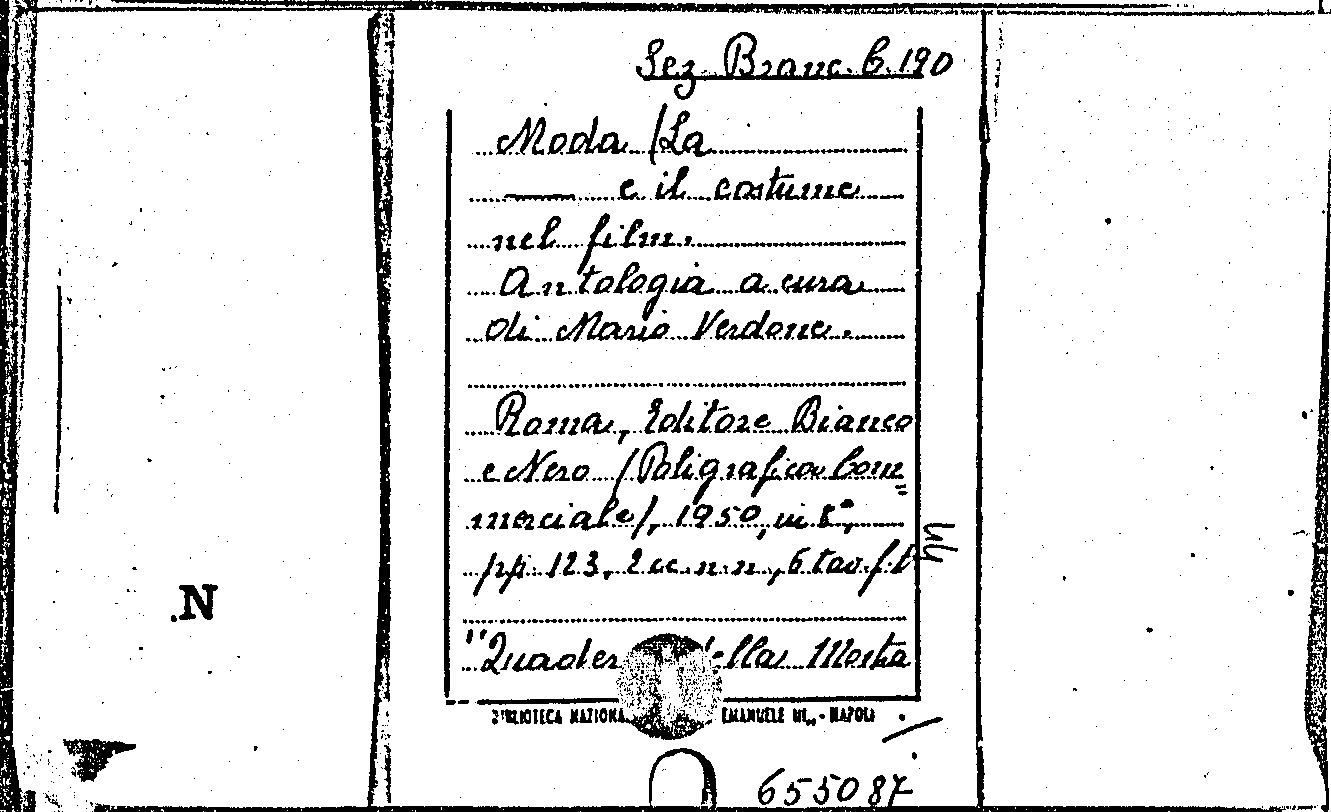 Sez. Branc. C. 190
Moda /La
—— e il costume
nel film.
Antologia a cura
di Mario Verdone.
Roma, Editore Bianco
e Nero /Poligrafica Com=
merciale/, 1950, in 8°,
pp. 123, 2 cc. n. n., 6 tav. f. t.
.N
"Quader della Mostra
BIBLIOTECA NAZIONA EMANUELE III,, - NAPOLI
655087